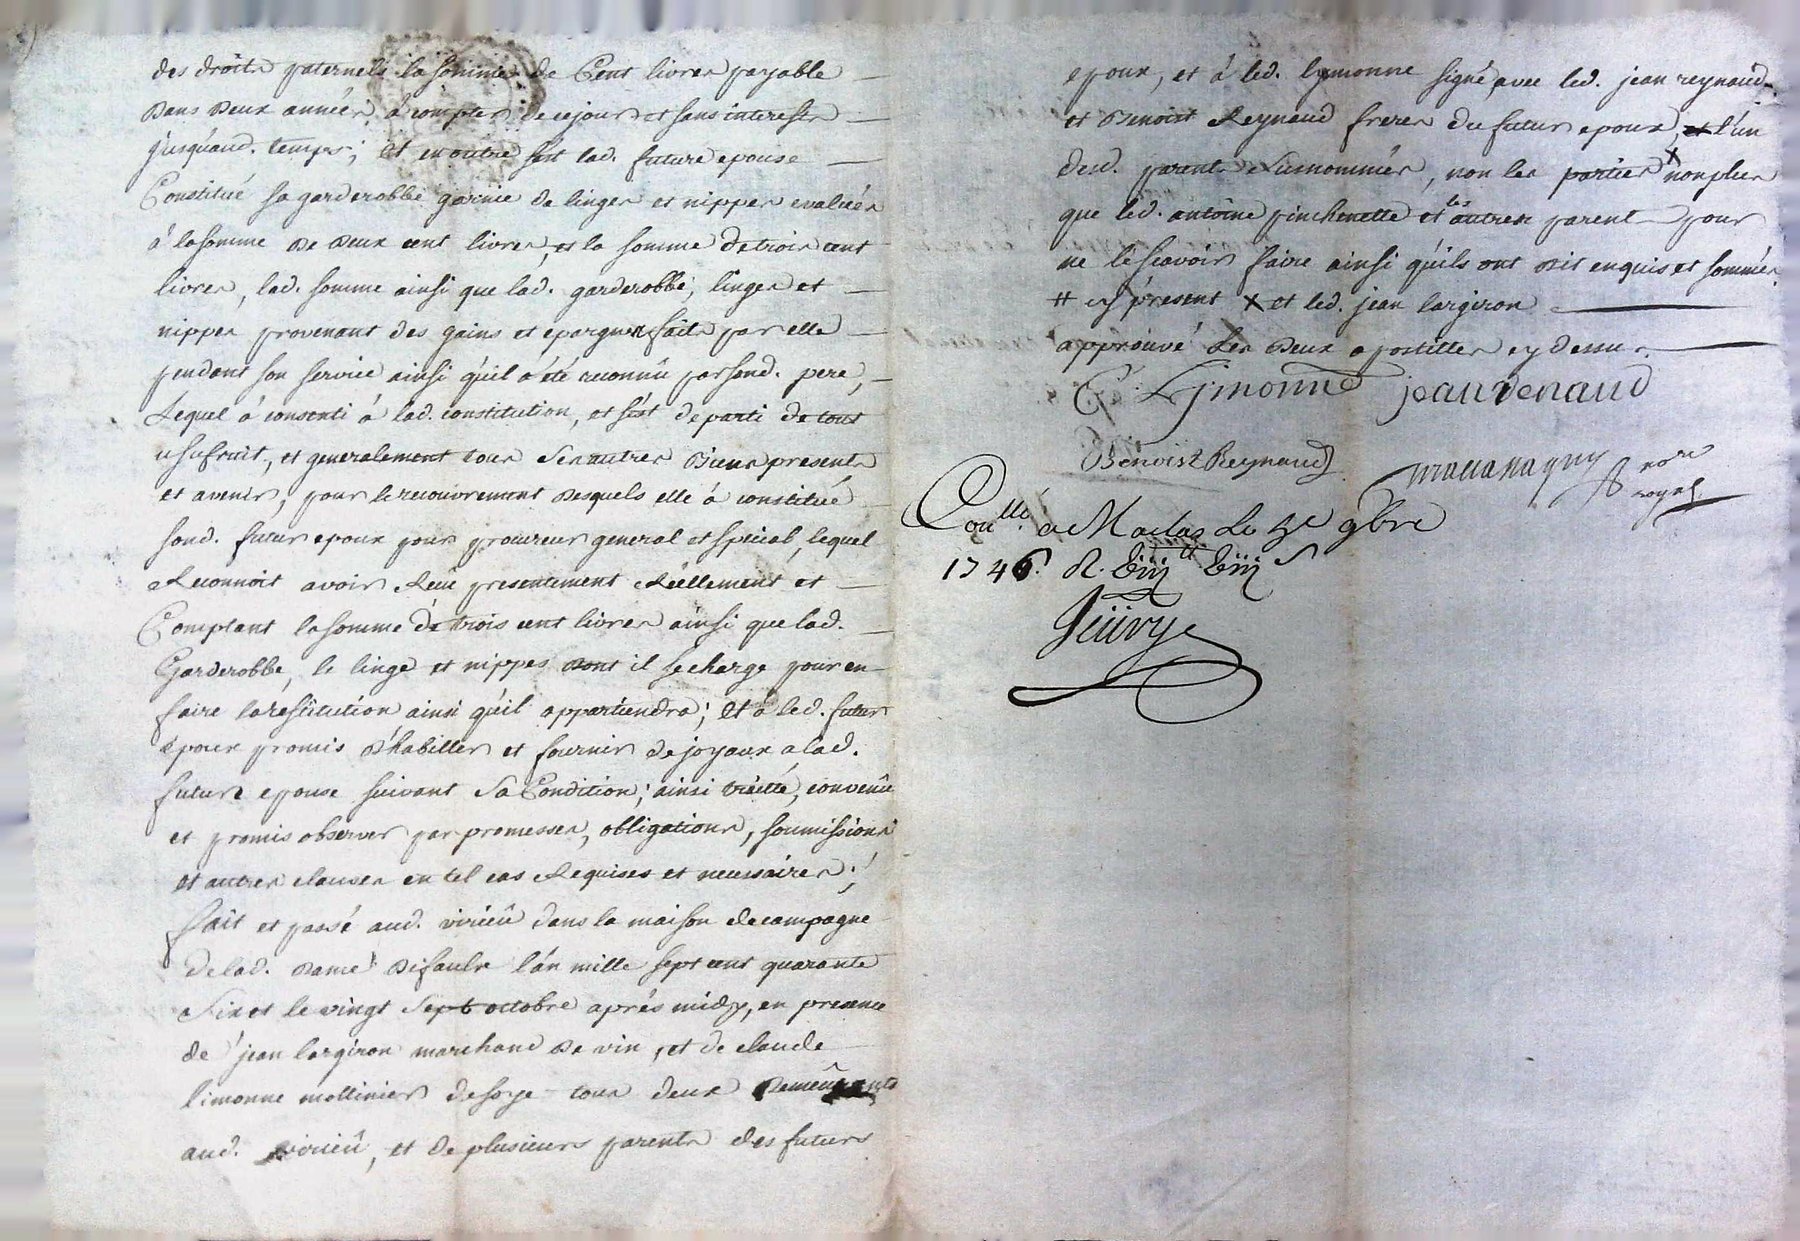 des droits paternels la somme de Cent livres payable
dans deux années à compter de ce jour et sans interests
jusqu'aud. temps; et en outre s'est lad. future epouse
Constitué sa garderobbe garnie de linges et nippes evaluées
à la somme de deux cent livres, et la somme de trois cent
livres, lad. somme ainsi que lad. garderobbe, linges et
nippes provenant des gains et epargnes faits par elle
pendant son service ainsi qu'il a été reconnû par sond. pere,
Lequel à consenti à lad. constitution, et s'est departi de tout
usufruit, et generalement tous ses autres biens presents
et avenir, pour le recouvrement desquels elle à constitué
sond. futur epoux pour procureur general et special, lequel
Reconnoit avoir Reçu presentement Réellement et
Comptant la somme de trois cent livres ainsi que lad.
Garderobbe, le linge et nippes dont il se charge pour en
faire la restitution ainsi qu'il appartiendra; et à led. futur
epoux promis d'habiller et fournir de joyaux a lad.
future epouse suivant sa Condition; ainsi traitté, convenû
et promis observer par promesses, obligations, soumissions
et autres clauses en tel cas Requises et necessaires;
fait et passé aud. virieû dans la maison de campagne
de lad. dame l'an mille sept cent quarante
Six et le vingt Sept octobre après midy, en presence
de jean largiron marchand de vin, et de claude
limonne mollinier de soye tous deux demeurants
aud. virieû, et de plusieurs parents des futurs
epoux, et à led. lymonne signé avec led. jean reynaud
et Benoist Reynaud freres du futur epoux, et l'un
desd. parents Susnommés, non les parties X non plus
que led. antoine pinchenette et les autres parent pour
ne le scavoir faire ainsi qu'ils ont dit enquis et sommés
# cy present X et led. jean largiron
approuvé les deux apostilles cy dessus
C. Lymonne jean Renaud
Benoist Reynaud
nore
royal
Conllé. a Maclas Le 5e 9bre
1746. R.